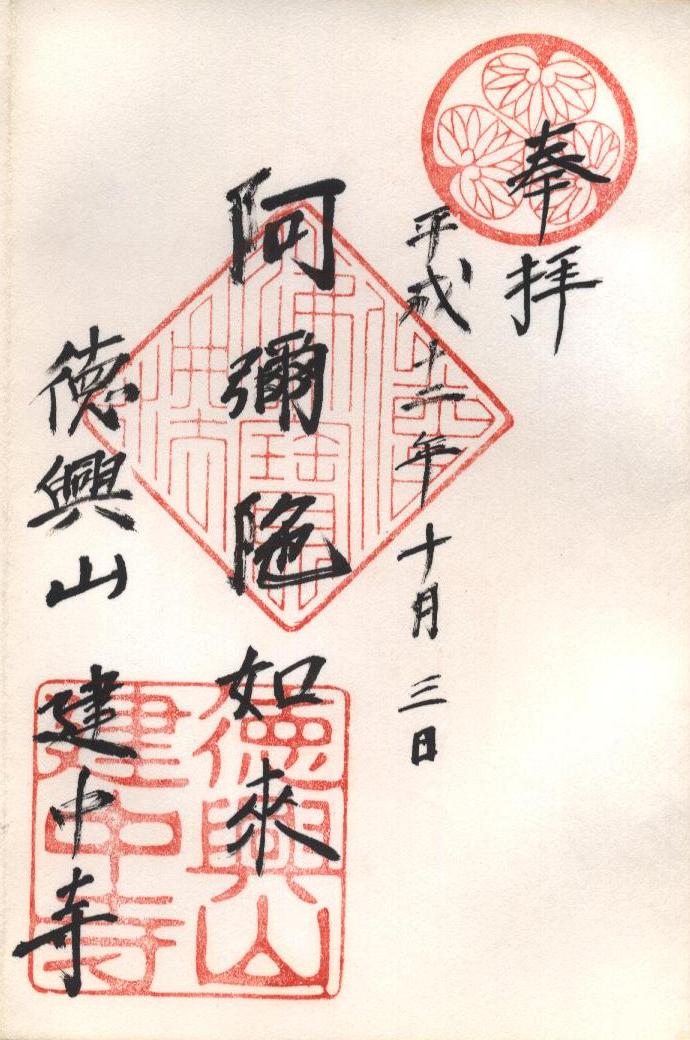 奉拝
平成十二年十月三日
阿彌陁如來
徳興山建中寺
徳興山
建中寺